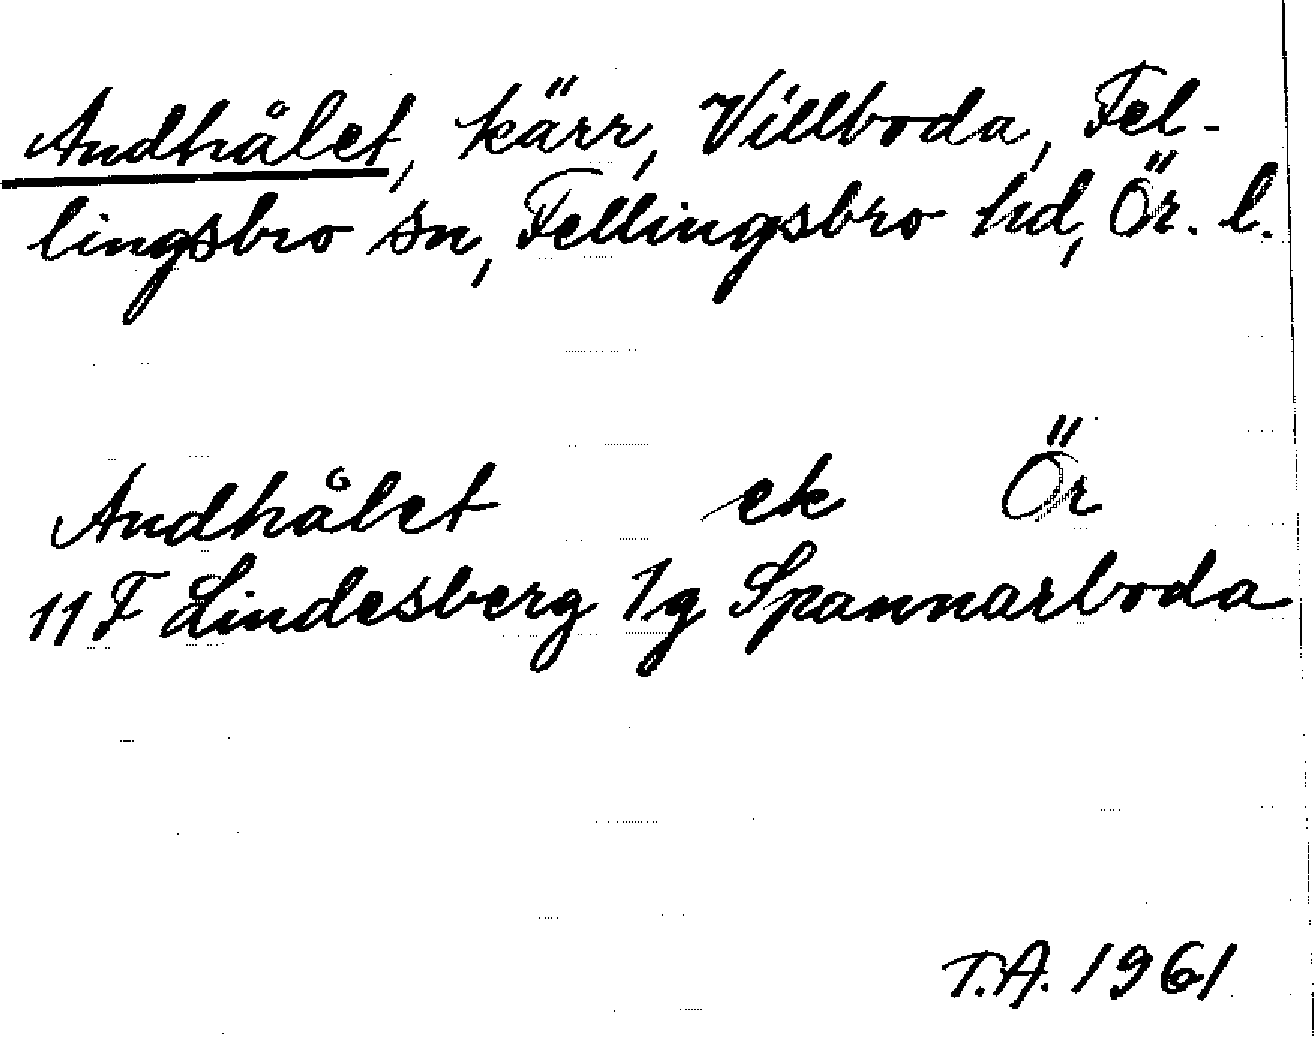 Andhålet, kärr, Villboda, Fel-
lingsbro sn, Fellingsbro hd, Ör. l.
Andhålet ek Ör
11 F Lindesberg 1g Spannarboda
T.A. 1961